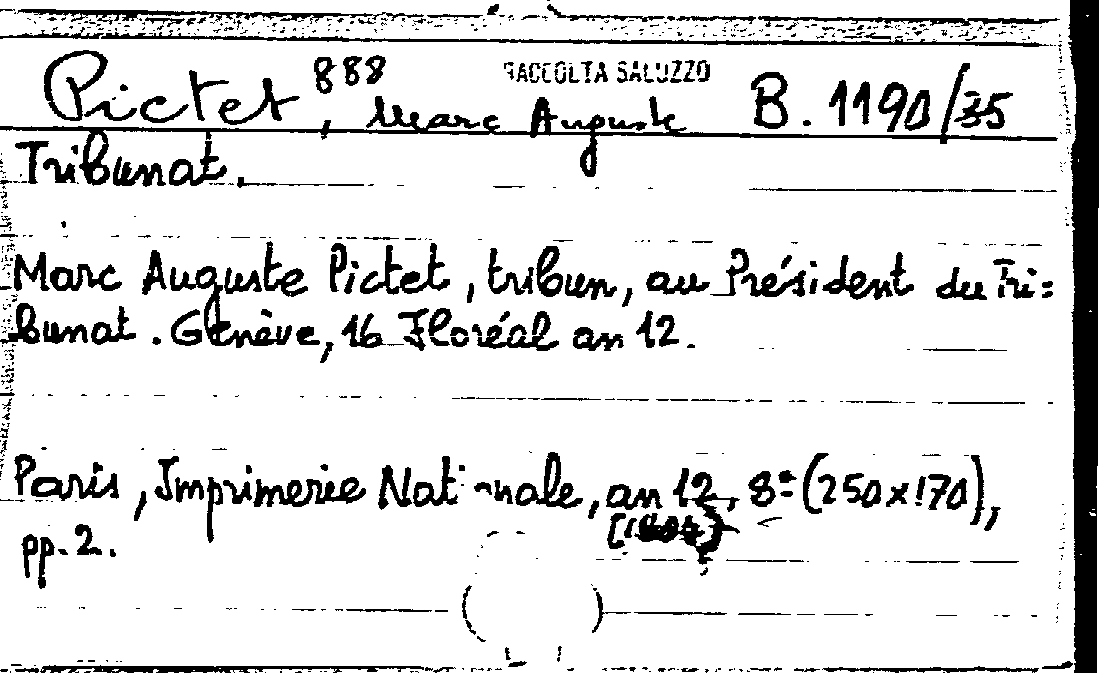 888 RACCOLTA SALUZZO
Pictet, Marc Auguste B. 1190/35
Tribunat.
Marc Auguste Pictet, tribun, au Président du Tri=
bunat. Genève, 16 Floréal an 12.
Paris, Imprimerie Nationale, an 12, 8° (250x170),
[1804]
pp. 2.